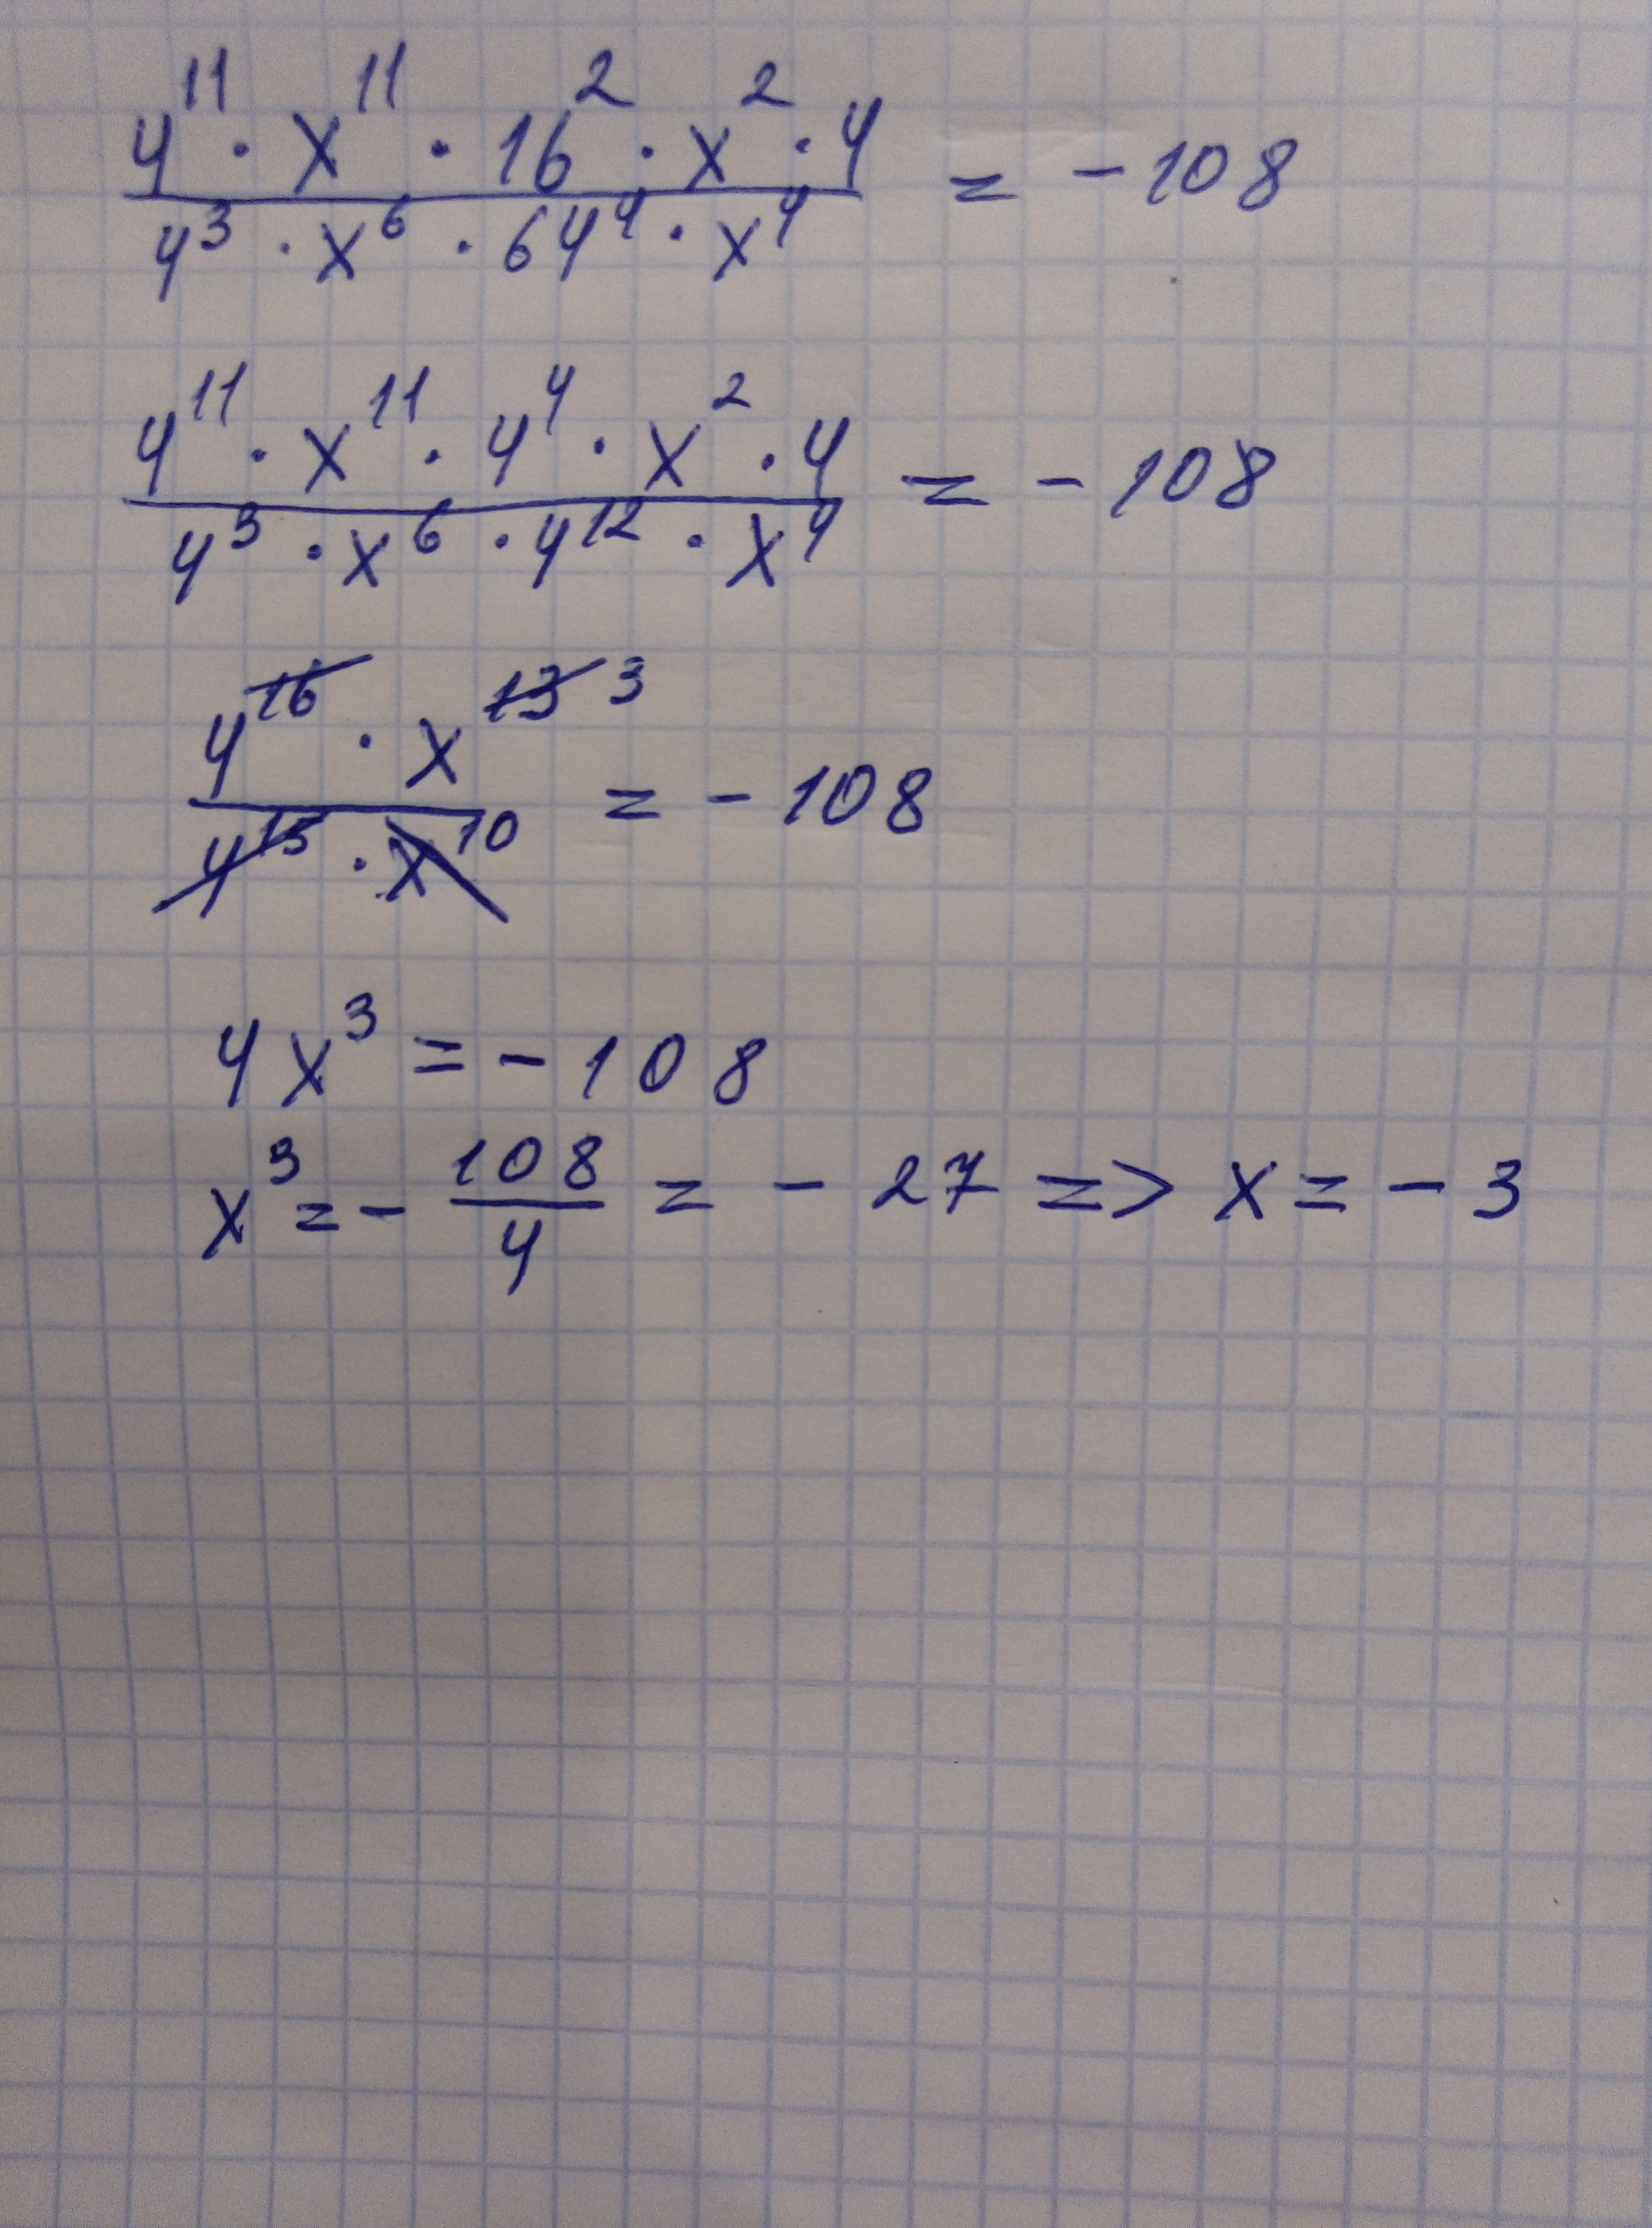 4¹¹ · x¹¹ · 16² · x² · 4
4³ · x⁶ · 64⁴ · x⁴
= - 108
4¹¹ · x¹¹ · 4⁴ · x² · 4
4³ · x⁶ · 4¹² · x⁴
= - 108
4¹⁶ · x¹³ ³
4¹⁵ · x¹⁰
= - 108
4x³ = - 108
x³ = - 108/4 = - 27 => x = - 3